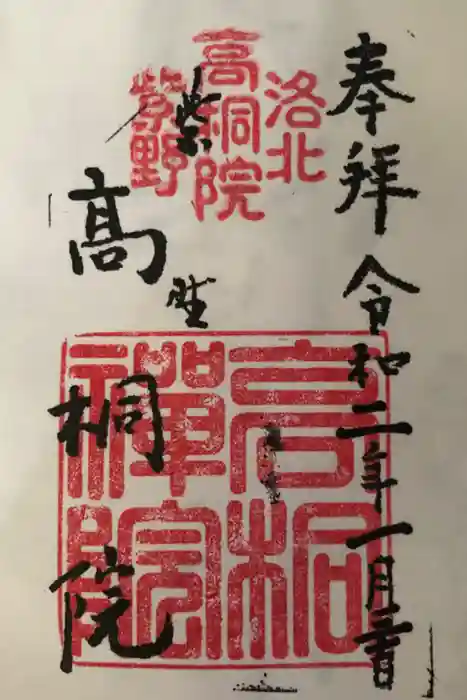 奉拝 令和二年一月
洛北
高桐院
紫野
紫野
髙桐院
高桐
禪院